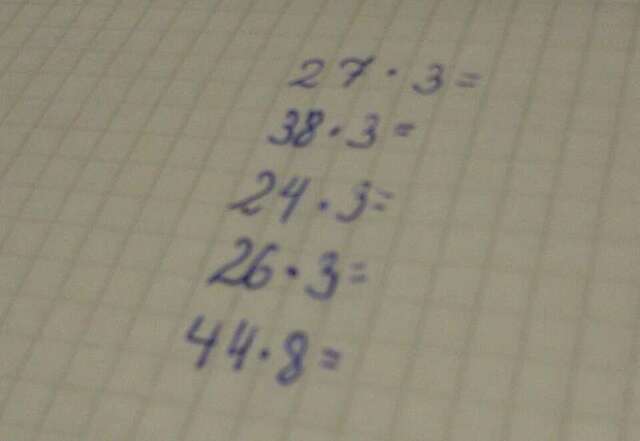 27 · 3 =
38 · 3 =
24 · 3 =
26 · 3 =
44 · 8 =